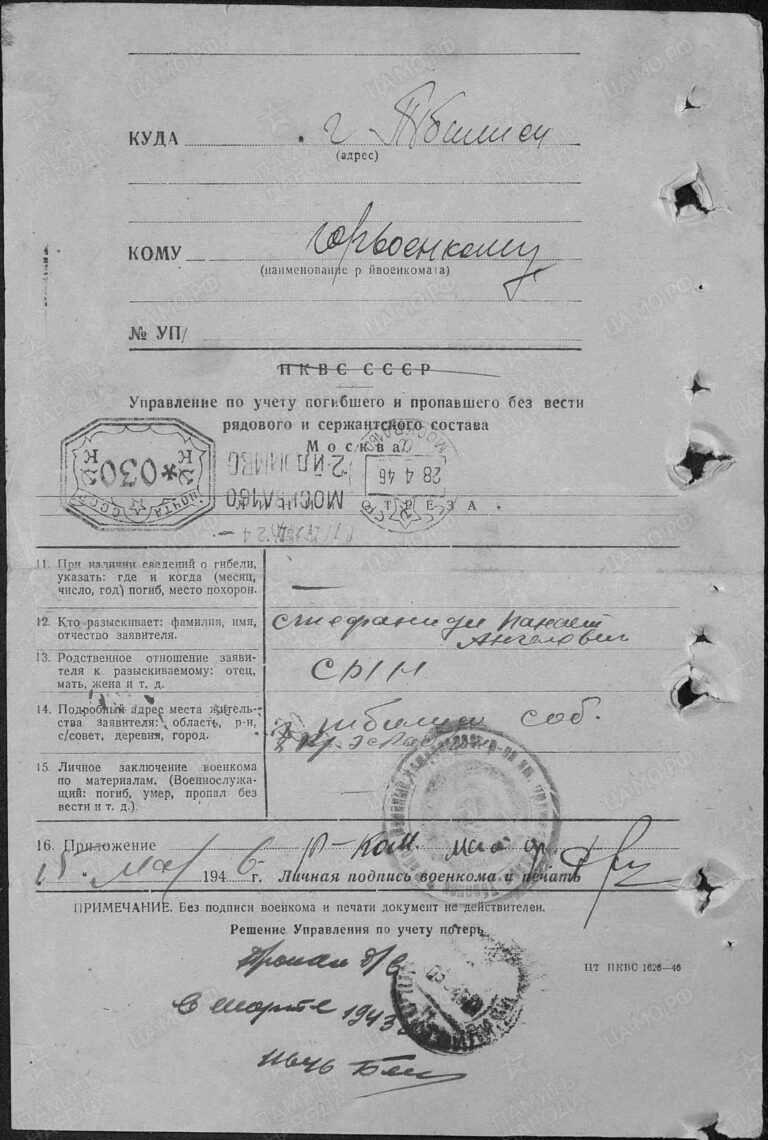 КУДА г. Тбилиси
(адрес)
КОМУ Горвоенкому
(наименование р йвоенкомата)
№ УП/
НКВС СССР
Управление по учету погибшего и пропавшего без вести
рядового и сержантского состава
Москва
ПОЧТА СССР
К *030 К
МОСКВА
28 4 46
СССР
11. При наличии сведений о гибели,
указать: где и когда (месяц,
число, год) погиб, место похорон.
—
12. Кто разыскивает: фамилия, имя,
отчество заявителя.
Стефаниди Панает
Ангелович
13. Родственное отношение заяви-
теля к разыскиваемому: отец,
мать, жена и т. д.
СЫН
14. Подробный адрес места житель-
ства заявителя: область, р-н,
с/совет, деревня, город.
г. Тбилиси соб.
15. Личное заключение военкома
по материалам. (Военнослужа-
щий: погиб, умер, пропал без
вести и т. д.).
16. Приложение
15 мая 1946 г. Личная подпись военкома и печать
ПРИМЕЧАНИЕ. Без подписи военкома и печати документ не действителен.
Решение Управления по учету потерь
Пропал б/в
в марте 1943
ЦТ НКВС 1626—46